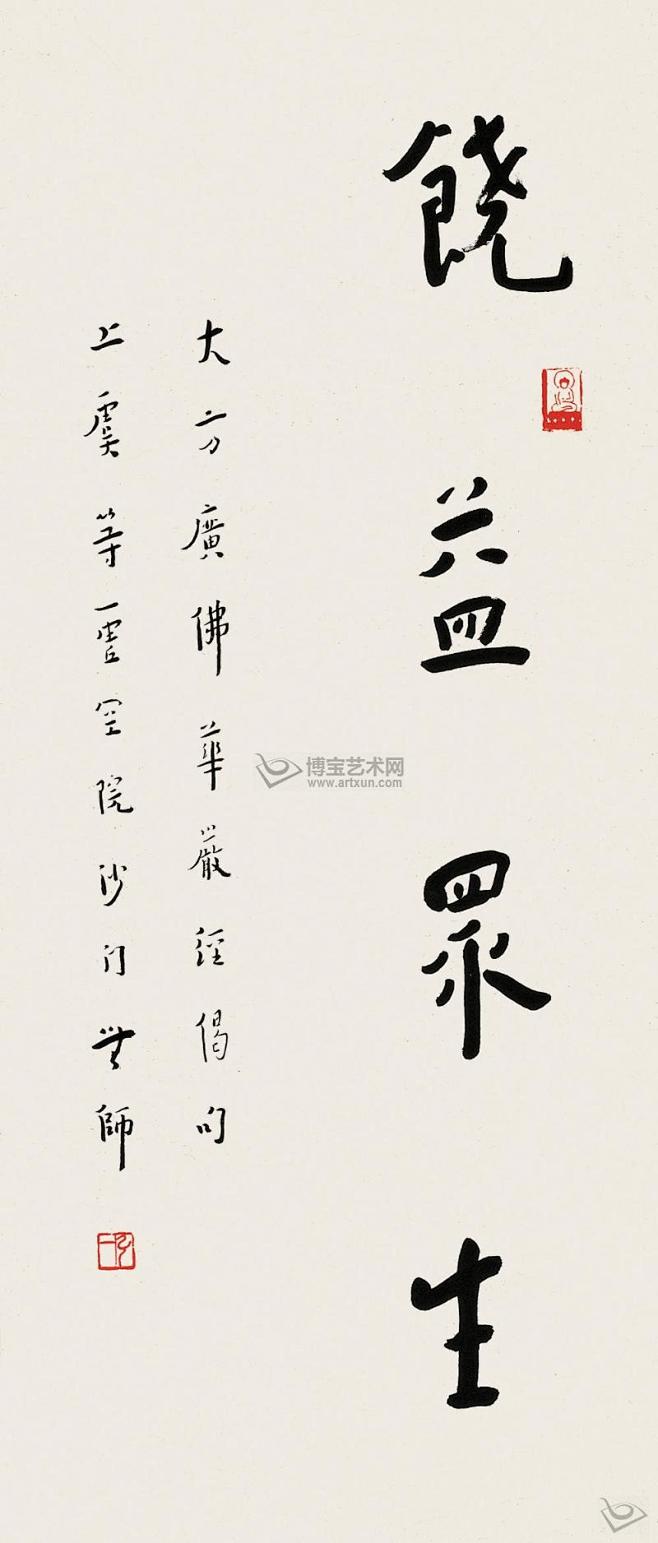 饒益眾生
大方廣佛華嚴經偈句
上虞等虛空院沙门無師
博宝艺术网
www.artxun.com